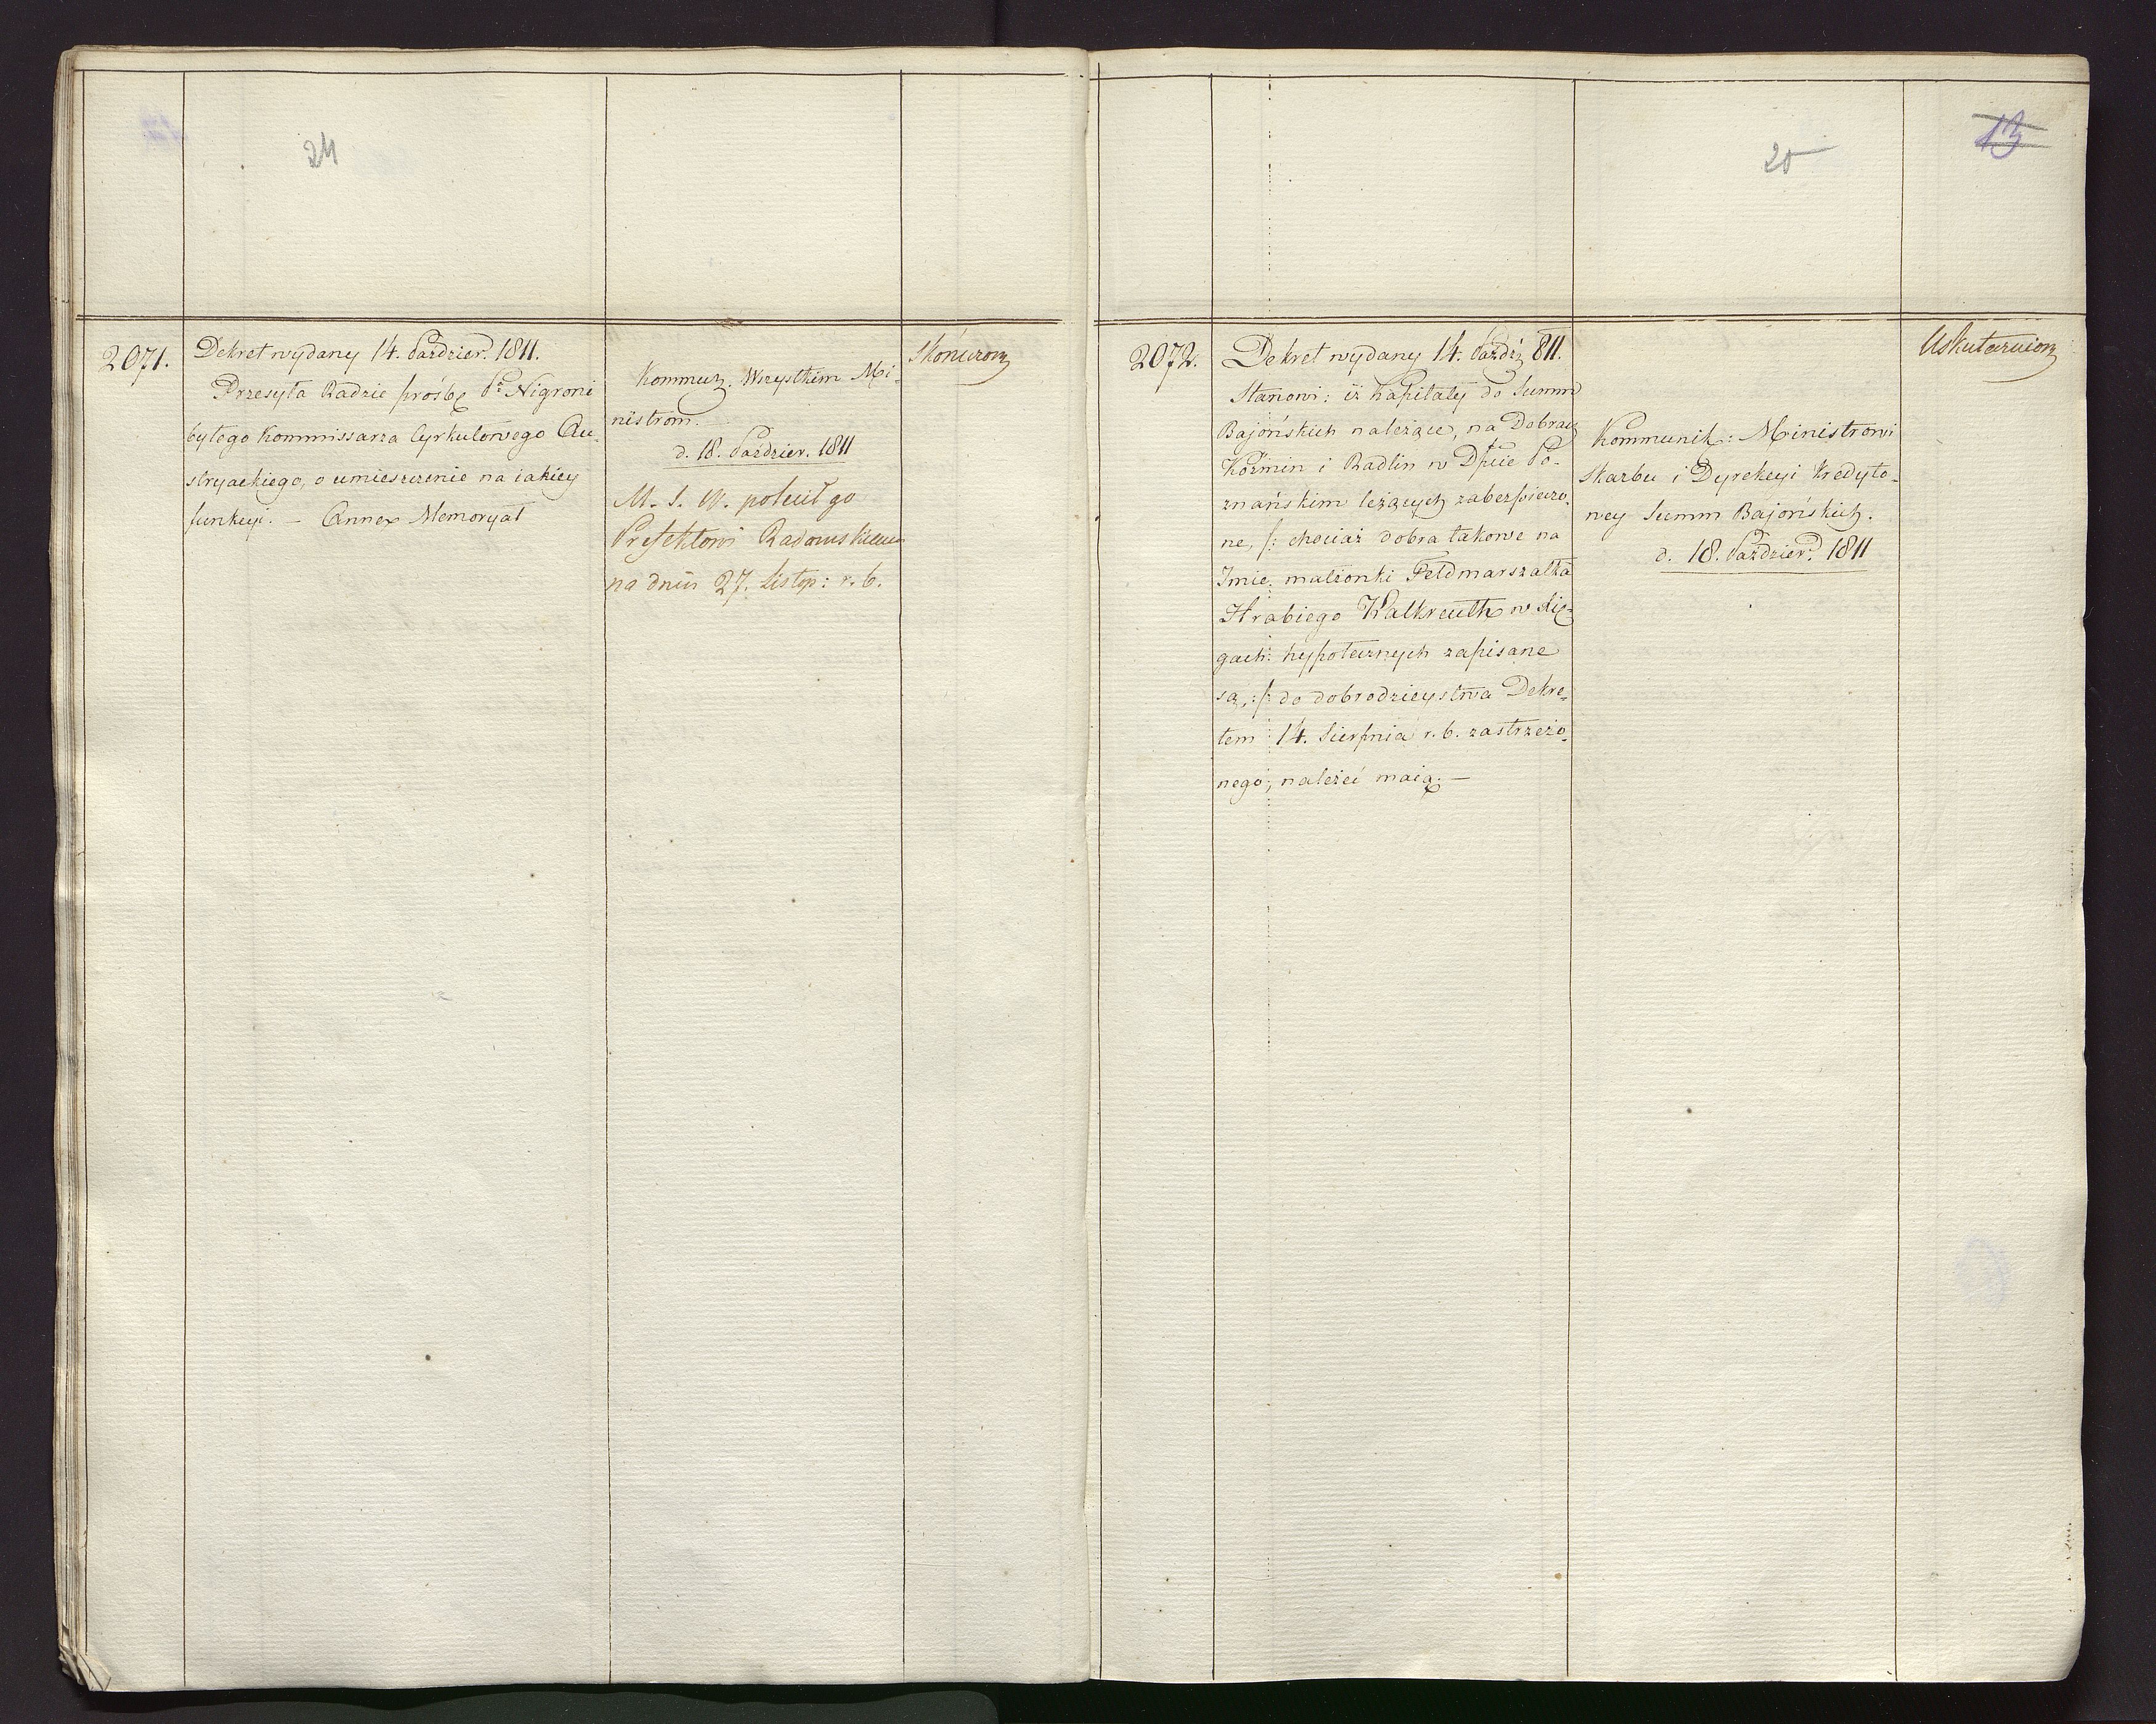 24
2071.
Dekret wydany 14. Paździer. 1811.
Przesyła Radzie prośbę Pa Nigroni
byłego Kommissarza Cyrkulowego Au-
stryackiego, o umieszczenie na iakiey
funkcyi. — Annex Memoryał
Kommuz. Wszystkim Mi-
nistrom.
d. 18. Paździer. 1811
M. S. W. polecił go
Prefektowi Radomskiemu
na dniu 27. Listop: r. b.
Skończony
13
25
2072.
Dekret wydany 14. Paźdź 811.
Stanowi: iż Kapitały do Summ
Bajońskich należące, na Dobrach
Koźmin i Radlin w Dpcie Po-
znańskim leżących zabezpieczo-
ne, /: chociaż dobra takowe na
Imie małżonki Feldmarszałka
Hrabiego Kalkreuth w Xię-
gach hypotecznych zapisane
są, :/ do dobrodzieystwa Dekre-
tem 14. Sierpnia r. b. zastrzeżo-
nego, należeć maią. —
Kommunik: Ministrowi
Skarbu i Dyrekcyi Kredyto-
wey Summ Bajońskich.
d. 18. Paździer. 1811
Uskuteczniony